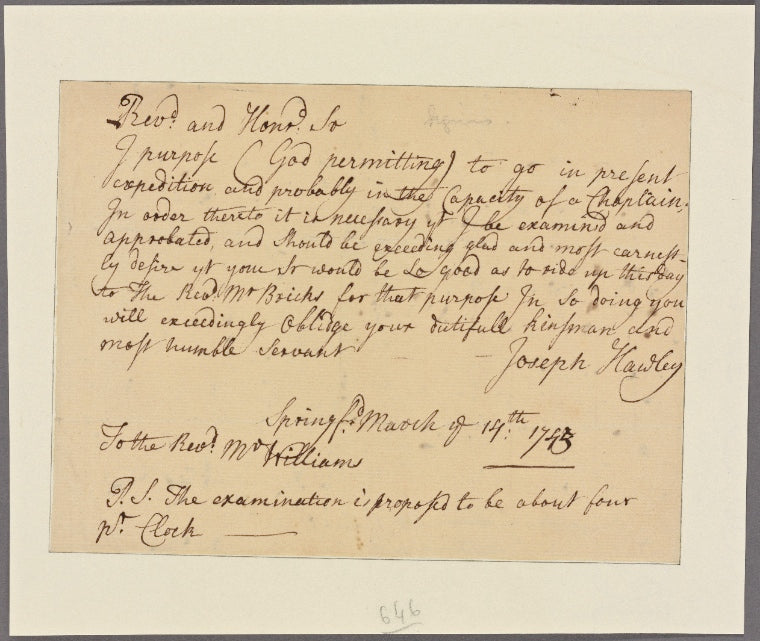 Revd. and Honrd. Sr
I purpose (God permitting) to go in present
expedition and probably in the Capacity of a Chaplain;
In order thereto it is necessary yt I be examind and
approbated, and should be exceeding glad and most earnest-
ly desire yt you Sr would be so good as to ride up this day
to the Revd. Mr Bricks for that purpose In so doing you
will exceedingly Oblidge your dutifull kinsman and
most humble Servant
Joseph Hawley
Springfd. March ye 14th. 
To the Revd. Mr Williams
P.S. The examination is proposed to be about four
pr. Clock
646